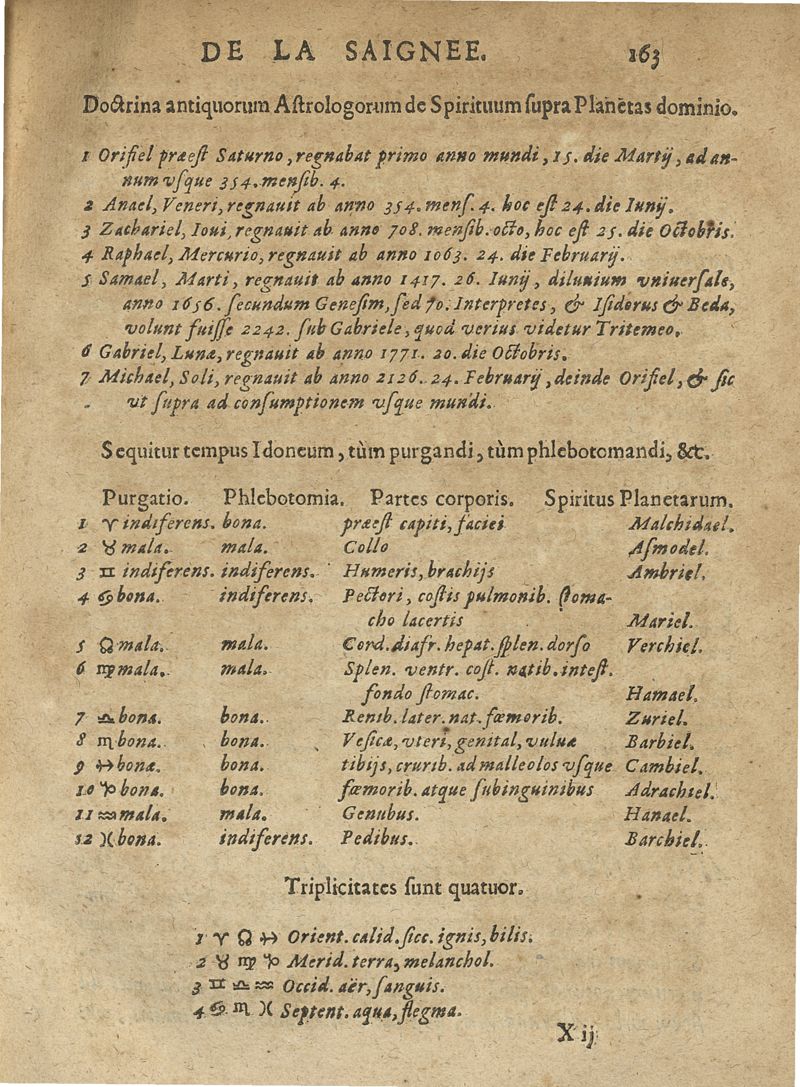 DE LA SAIGNEE. 163
Doctrina antiquorum Astrologorum de Spirituum supra Planetas dominio.
1 Orifiel præest Saturno, regnabat primo anno mundi, 15. die Martij, ad an-
num vsque 354. mensib. 4.
2 Anael, Veneri, regnauit ab anno 354. mens. 4. hoc est 24. die Iunij.
3 Zachariel, Ioui, regnauit ab anno 708. mensib. octo, hoc est 25. die Octobris.
4 Raphael, Mercurio, regnauit ab anno 1063. 24. die Februarij.
5 Samael, Marti, regnauit ab anno 1417. 26. Iunij, diluuium vniuersale,
anno 1656. secundum Genesim, sed 70. Interpretes, & Isidorus & Beda,
volunt fuisse 2242. sub Gabriele, quod verius videtur Tritemeo.
6 Gabriel, Lunæ, regnauit ab anno 1771. 20. die Octobris.
7 Michael, Soli, regnauit ab anno 2126. 24. Februarij, deinde Orifiel, & sic
vt supra ad consumptionem vsque mundi.
Sequitur tempus Idoneum, tùm purgandi, tùm phlebotomandi, &c.
Purgatio. Phlebotomia. Partes corporis. Spiritus Planetarum.
1 ♈ indiferens. bona. præest capiti, faciei Malchidael.
2 ♉ mala. mala. Collo Asmodel.
3 ♊ indiferens. indiferens. Humeris, brachijs Ambriel.
4 ♋ bona. indiferens. Pectori, costis pulmonib. stoma-
cho lacertis Mariel.
5 ♌ mala. mala. Cord. diafr. hepat. splen. dorso Verchiel.
6 ♍ mala. mala. Splen. ventr. cost. natib. intest.
fondo stomac. Hamael.
7 ♎ bona. bona. Renib. later. nat. fœmorib. Zuriel.
8 ♏ bona. bona. Vesicæ, vteri, genital, vuluæ Barbiel.
9 ♐ bona. bona. tibijs, crurib. ad malleolos vsque Cambiel.
10 ♑ bona. bona. fœmorib. atque subinguinibus Adrachiel.
11 ♒ mala. mala. Genubus. Hanael.
12 ♓ bona. indiferens. Pedibus. Barchiel.
Triplicitates sunt quatuor.
1 ♈ ♌ ♐ Orient. calid. sicc. ignis, bilis.
2 ♉ ♍ ♑ Merid. terra, melanchol.
3 ♊ ♎ ♒ Occid. aër, sanguis.
4 ♋ ♏ ♓ Septent. aqua, flegma.
X ij